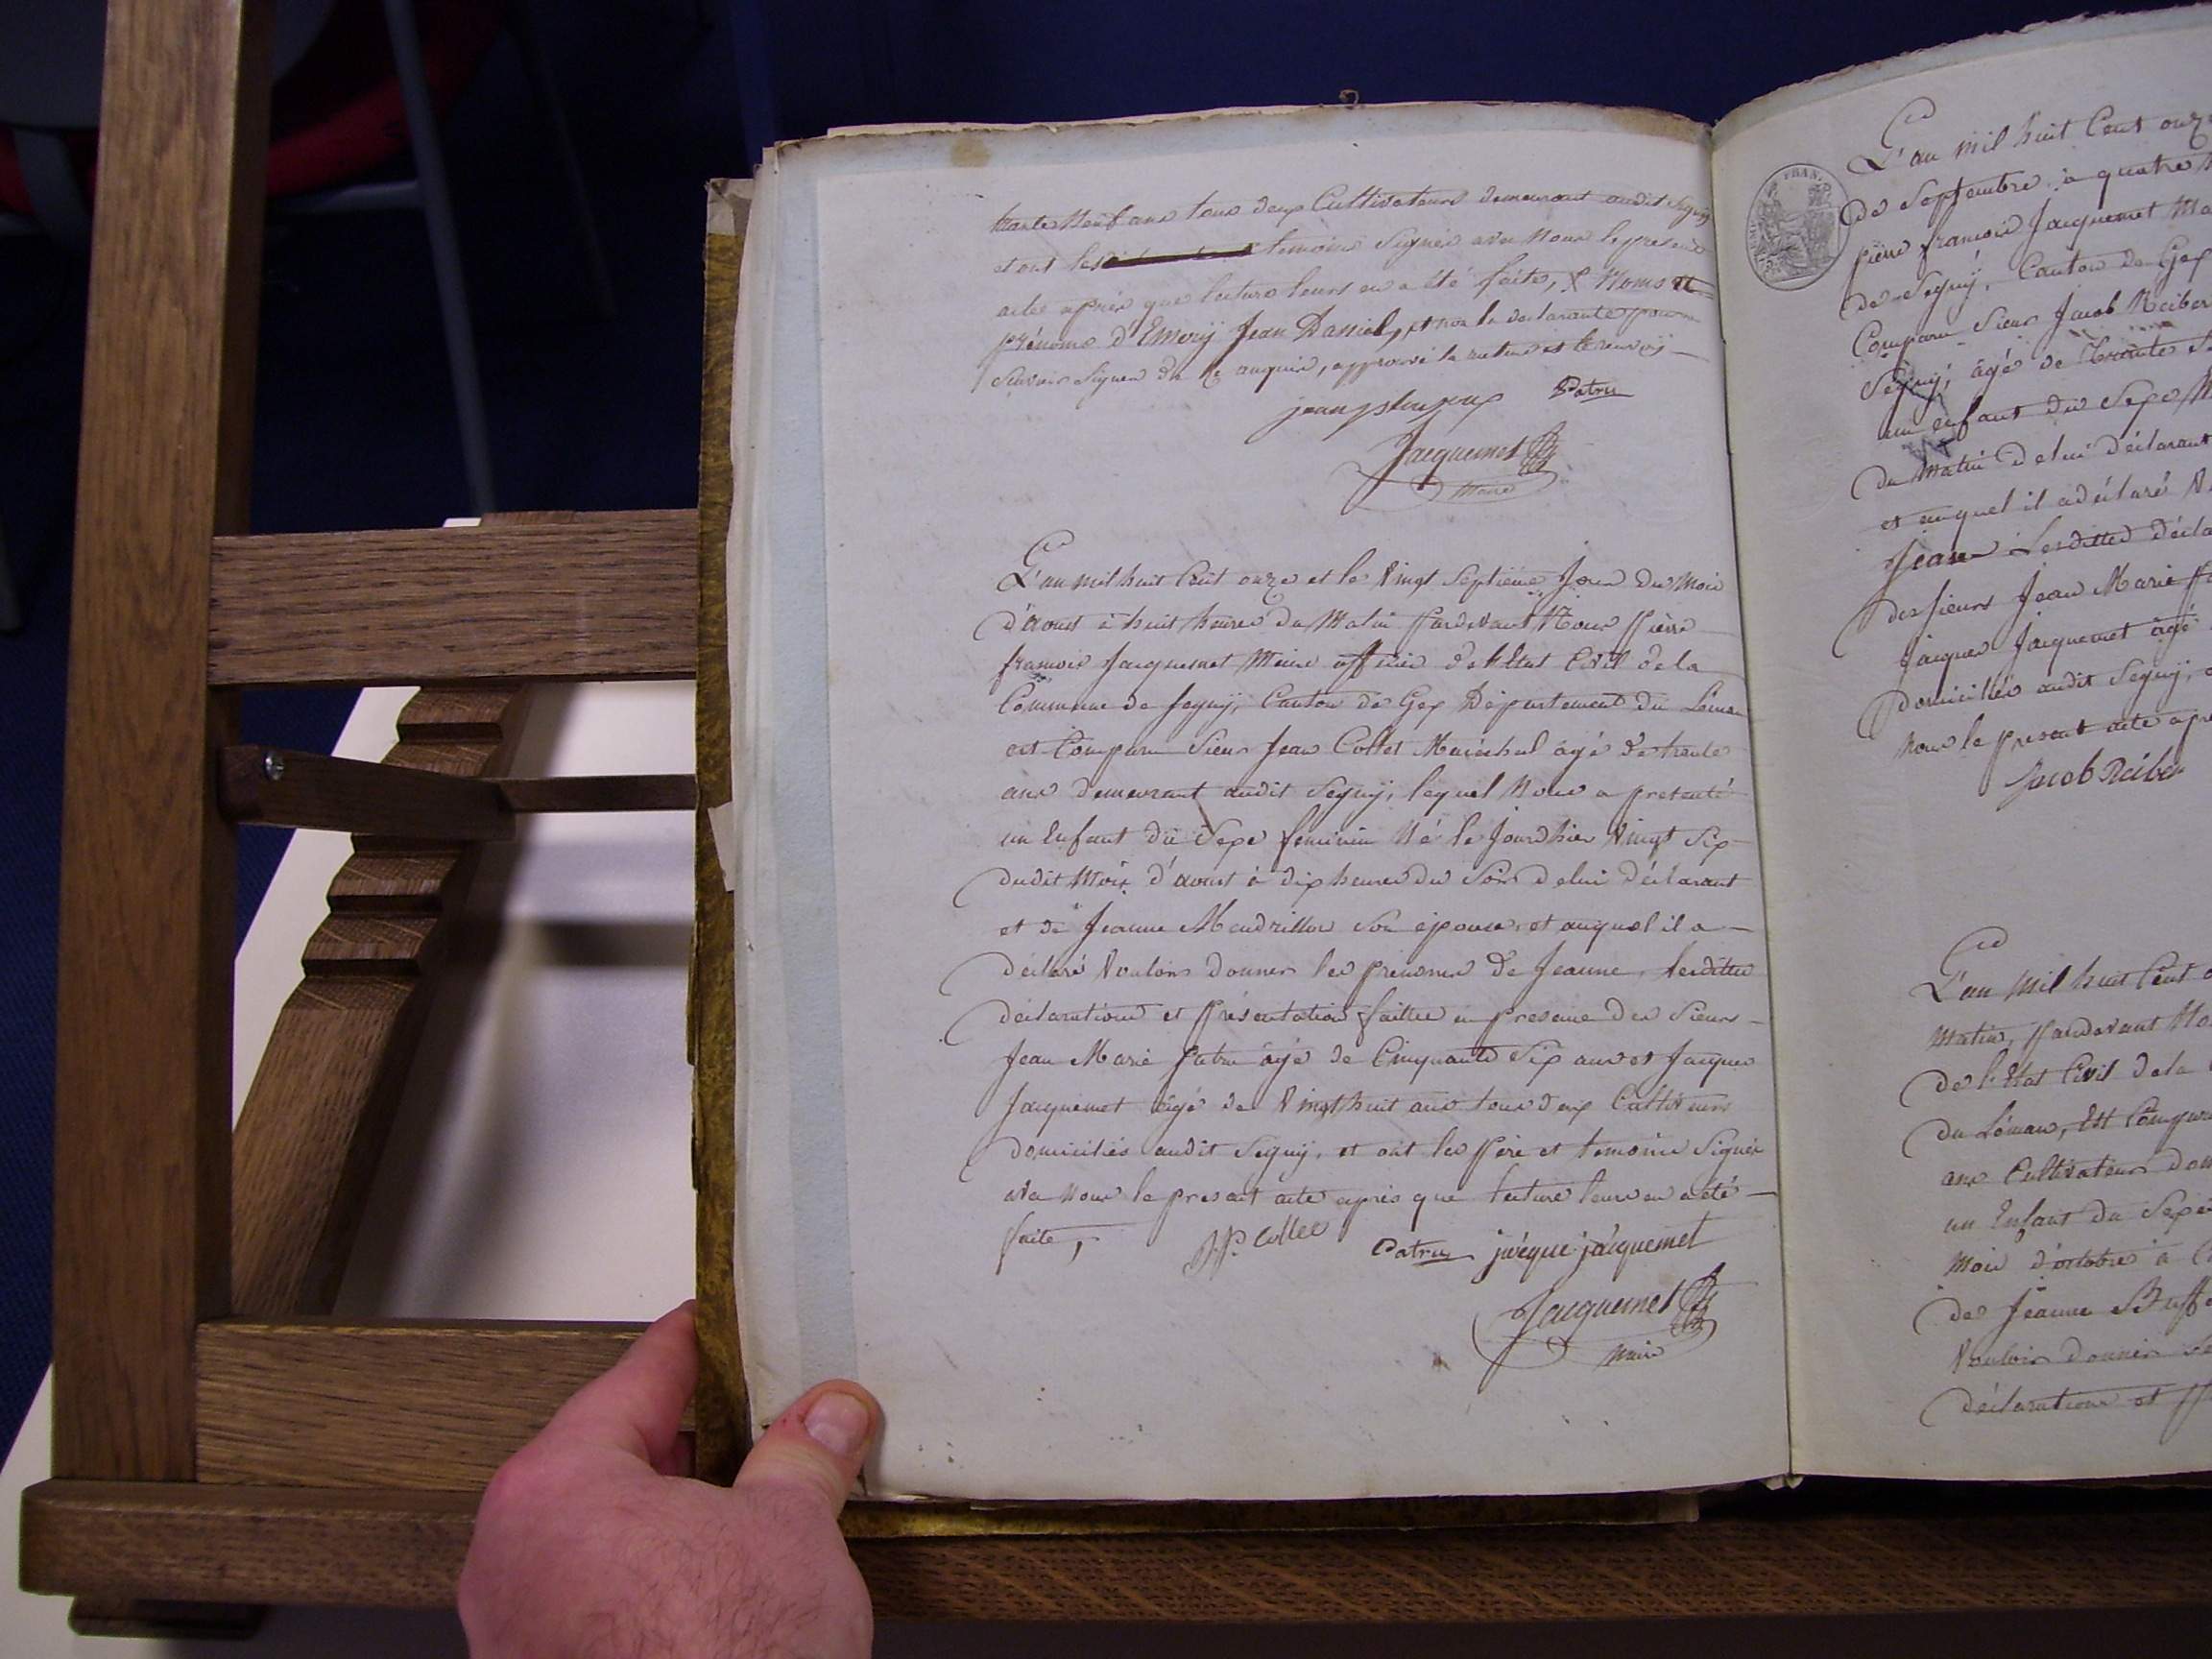 trente Neuf ans tous deux Cultivateurs demeurant audit Segny
et ont les temoins Signés avec Nous le present
acte après que lecture leurs en a été faite, X Noms et
prénoms d'Emery Jean Daniel, et non la declarante pour ne
Scavoir Signer de ce enquis, approuvé la rature et le renvoy
Patru
Jacquemet
Maire
L'an mil huit Cent onze et le Vingt Septième Jour du Mois
d'aoust à huit heures du Matin Pardevant Nous Pierre
francois Jacquemet Maire officier de l'Etat Civil de la
Commune de Segny, Canton de Gex Département du Léman
est Comparu Sieur Jean Collet Maréchal âgé de trente
ans demeurant audit Segny, lequel Nous a presenté
un Enfant du Sexe feminin Né le Jourdhier Vingt Six
dudit Mois d'aoust à dix heures du Soir de lui déclarant
et de Jeanne Mendrillon Son épouse, et auquel il a
déclaré Vouloir donner les prenoms de Jeanne, lesdittes
déclaration et Présentation faittes en presence des Sieurs
Jean Marie Patru âgé de Cinquante Six ans et Jacques
Jacquemet âgé de Vingt huit ans tous deux Cultiveurs
domiciliés audit Segny, et ont les Père et temoins Signés
avec Nous le present acte après que lecture leurs en a été
faite,
Collet Patru jacque jacquemet
Jacquemet
Maire
L'an mil huit Cent onze
de Septembre à quatre
pierre francois Jacquemet
de Segny, Canton de Gex
Comparu Sieur Jacob Reiber
Segny, âgé de trente
un enfant du Sexe
du Matin de lui déclarant
et auquel il a déclaré
Jean Lesdittes
des sieurs Jean Marie
Jacques Jacquemet âgé
domiciliés audit Segny,
Nous le present acte
Jacob Reiber
L'an Mil huit Cent
Matin, Pardevant
de l'Etat Civil de la
du Léman, Est Comparu
ans Cultivateur
un Enfant du Sexe
Mois d'octobre à
de Jeanne
Vouloir donner
déclaration et